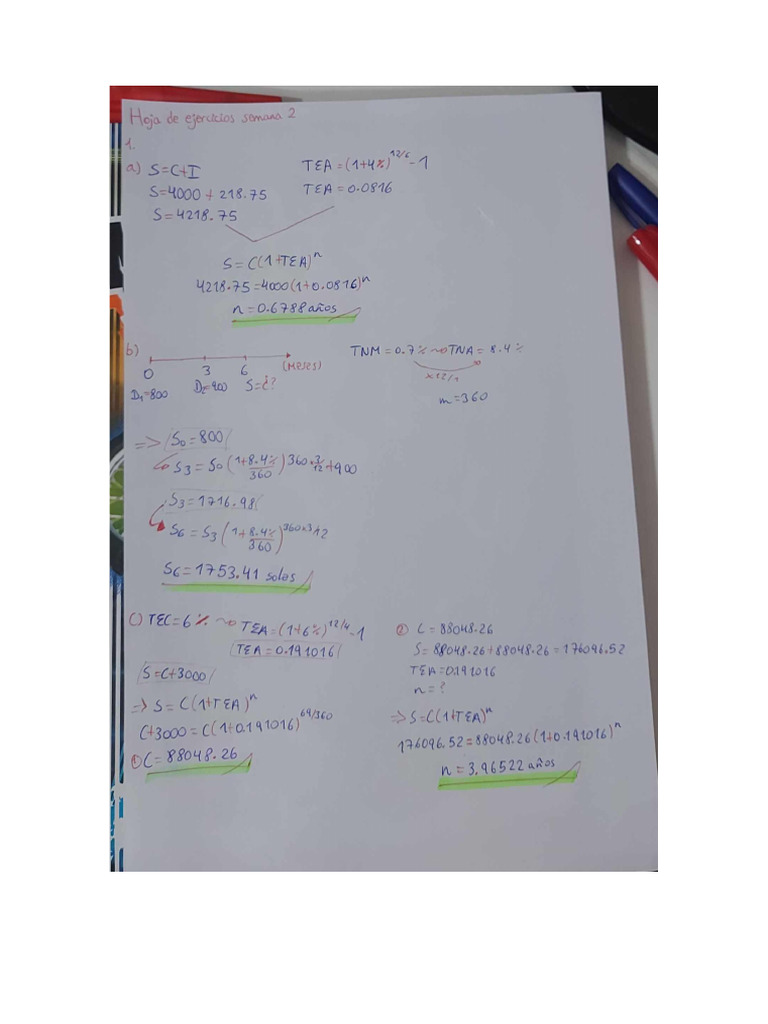 Hoja de ejercicios semana 2
1.
a) S=C+I
S=4000+218.75
S=4218.75
TEA=(1+4%)^12/6-1
TEA=0.0816
S=C(1+TEA)^n
4218.75=4000(1+0.0816)^n
n=0.6788 años
b)
0 3 6 (meses)
D1=800 D2=900 S=¿?
TNM=0.7% ~> TNA=8.4%
x12/1
m=360
=> S0=800
S3=S0(1+8.4%/360)^360x3/12+900
S3=1716.98
S6=S3(1+8.4%/360)^360x3/12
S6=1753.41 soles
c) TEC=6% ~> TEA=(1+6%)^12/4-1
TEA=0.191016
S=C+3000
=> S=C(1+TEA)^n
C+3000=C(1+0.191016)^69/360
① C=88048.26
② C=88048.26
S=88048.26+88048.26=176096.52
TEA=0.191016
n=?
=> S=C(1+TEA)^n
176096.52=88048.26(1+0.191016)^n
n=3.96522 años